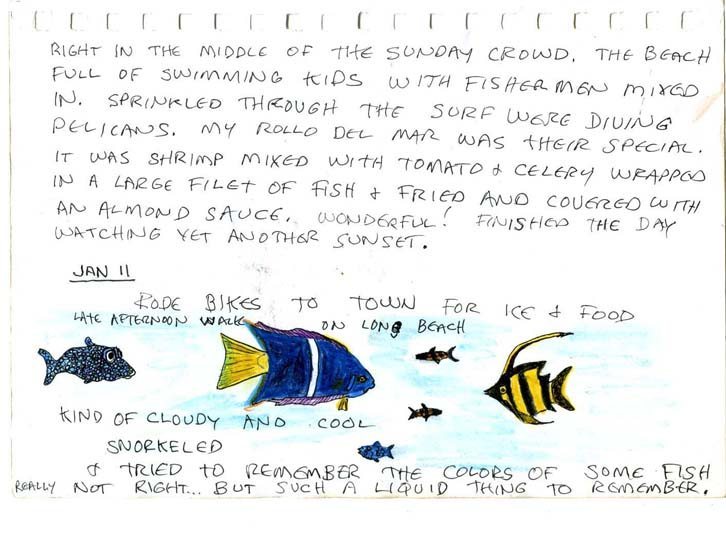 RIGHT IN THE MIDDLE OF THE SUNDAY CROWD. THE BEACH
FULL OF SWIMMING KIDS WITH FISHERMEN MIXED
IN. SPRINKLED THROUGH THE SURF WERE DIVING
PELICANS. MY ROLLO DEL MAR WAS THEIR SPECIAL.
IT WAS SHRIMP MIXED WITH TOMATO & CELERY WRAPPED
IN A LARGE FILET OF FISH & FRIED AND COVERED WITH
AN ALMOND SAUCE. WONDERFUL! FINISHED THE DAY
WATCHING YET ANOTHER SUNSET.
JAN 11
RODE BIKES TO TOWN FOR ICE & FOOD
LATE AFTERNOON WALK ON LONG BEACH
KIND OF CLOUDY AND COOL
SNORKELED
& TRIED TO REMEMBER THE COLORS OF SOME FISH
REALLY NOT RIGHT... BUT SUCH A LIQUID THING TO REMEMBER.